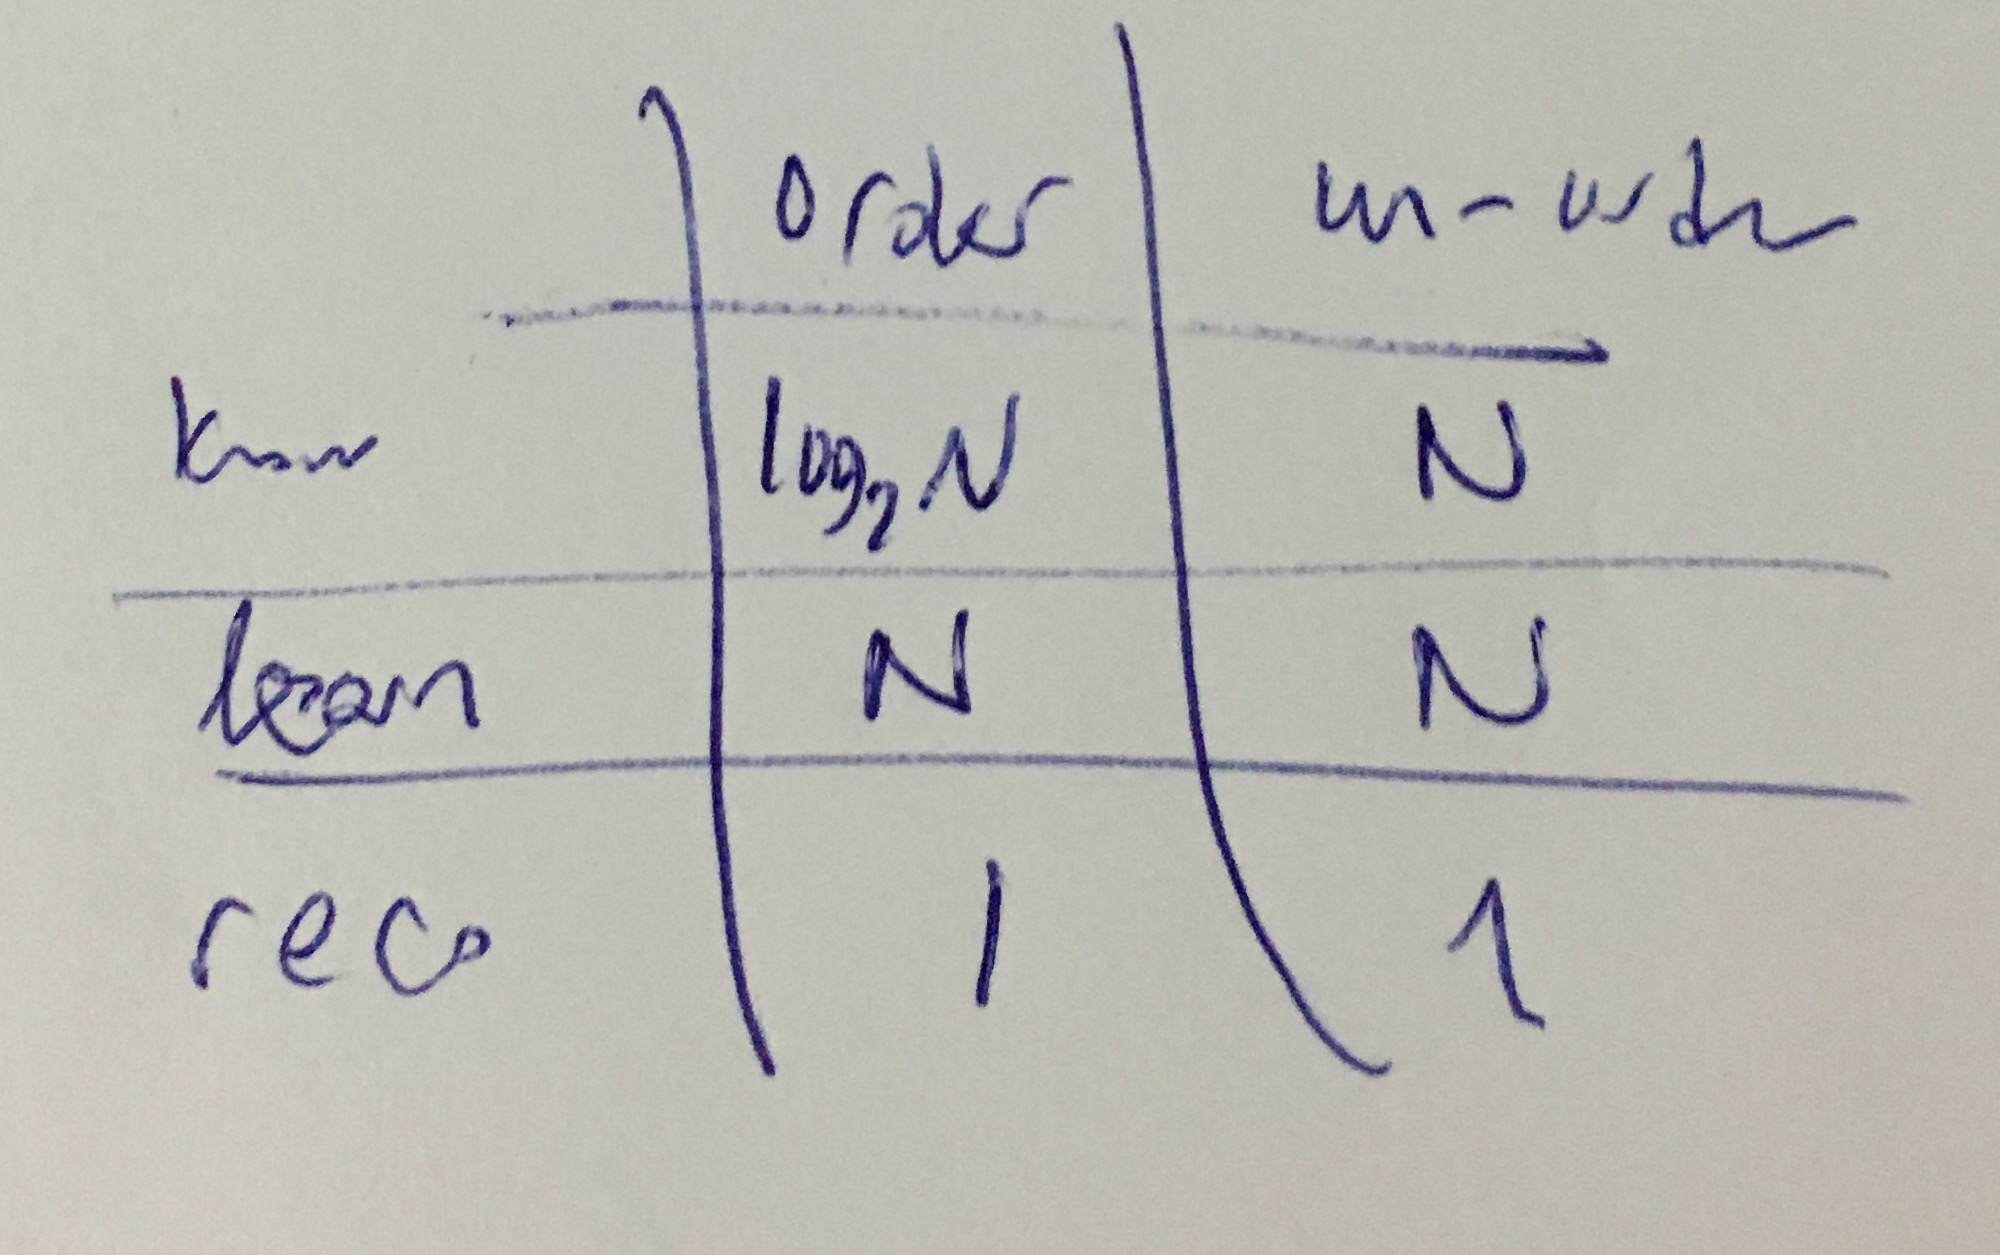 order un-order
know log₂N N
learn N N
reco 1 1